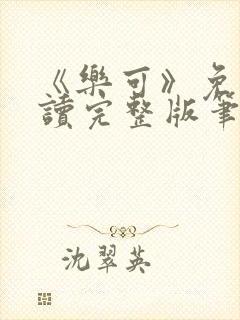 《樂可》免
讀完整版筆
沈翠英